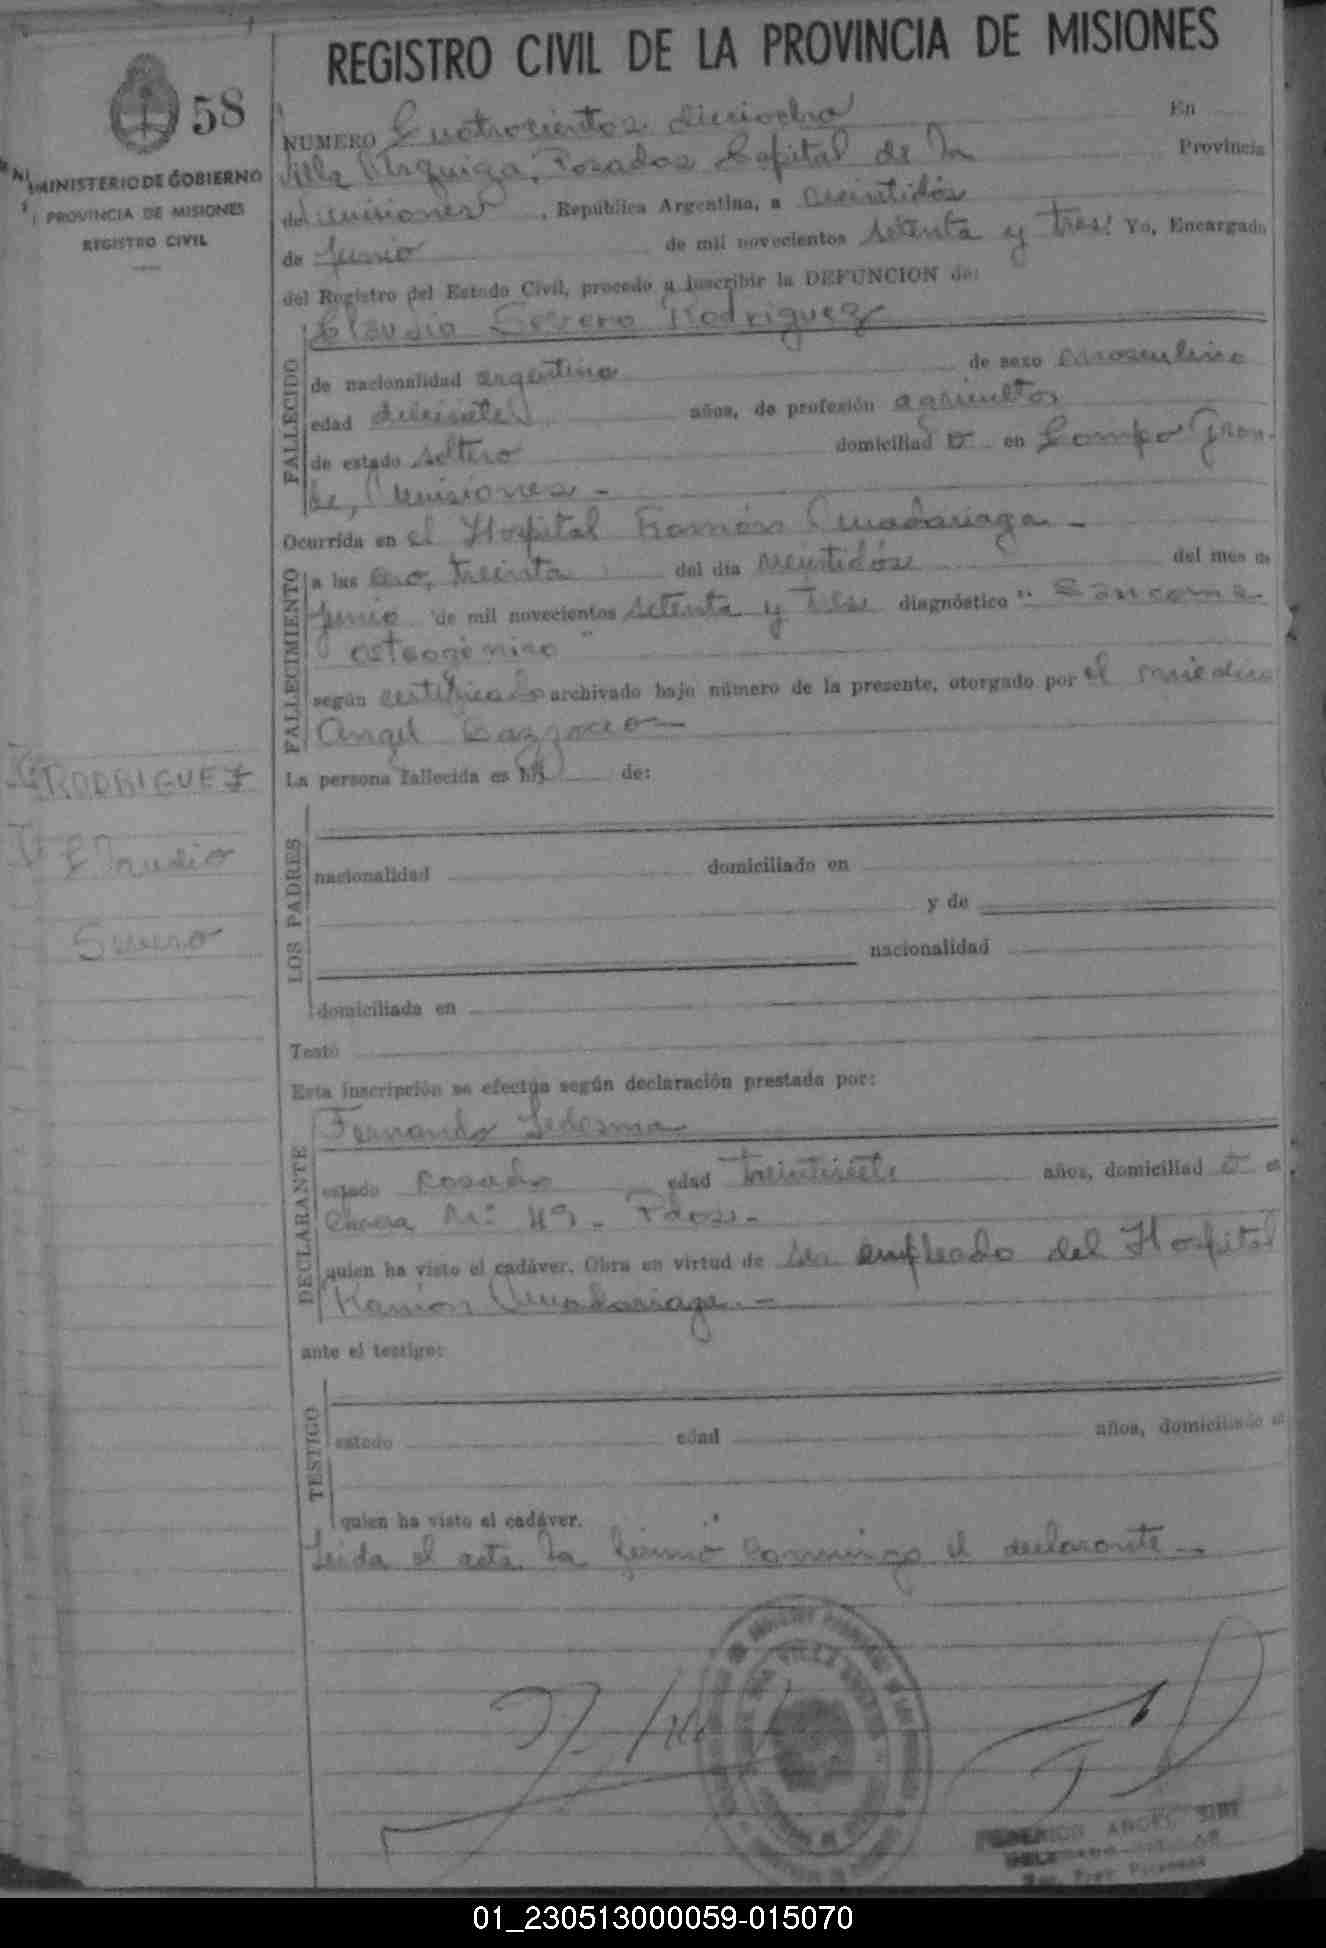 REGISTRO CIVIL DE LA PROVINCIA DE MISIONES
58
MINISTERIO DE GOBIERNO
PROVINCIA DE MISIONES
REGISTRO CIVIL
NUMERO Cuatrocientos dieciocho En
Villa Urquiza, Posadas Capital de la Provincia
de Misiones, República Argentina, a veintidós
de Junio de mil novecientos setenta y tres Yo, Encargado
del Registro del Estado Civil, procedo a inscribir la DEFUNCION de:
Claudio Severo Rodriguez
FALLECIDO
de nacionalidad argentino de sexo masculino
edad diecisiete años, de profesión agricultor
de estado soltero domiciliad o en Campo Gran-
de, Misiones -
Ocurrida en el Hospital Ramón Madariaga -
FALLECIMIENTO
a las cero, treinta del día veintidós del mes de
Junio de mil novecientos setenta y tres diagnóstico "Sarcoma
osteogénico"
según certificado archivado bajo número de la presente, otorgado por el médico
Angel
La persona fallecida es hij de:
LOS PADRES
nacionalidad domiciliado en
y de
nacionalidad
domiciliada en
Testó
Esta inscripción se efectúa según declaración prestada por:
Fernando Ledesma
DECLARANTE
estado casado edad treintisiete años, domiciliad o en
Chacra Nº 49 - Pdas. -
quien ha visto el cadáver. Obra en virtud de ser empleado del Hospital
Ramón Madariaga. -
ante el testigo:
TESTIGO
estado edad años, domiciliado en
quien ha visto el cadáver.
Leida el acta la firmó conmigo el declarante -
VILLA URQUIZA
FEDERICO ANGEL
RODRIGUEZ
Claudio
Severo
01_230513000059-015070